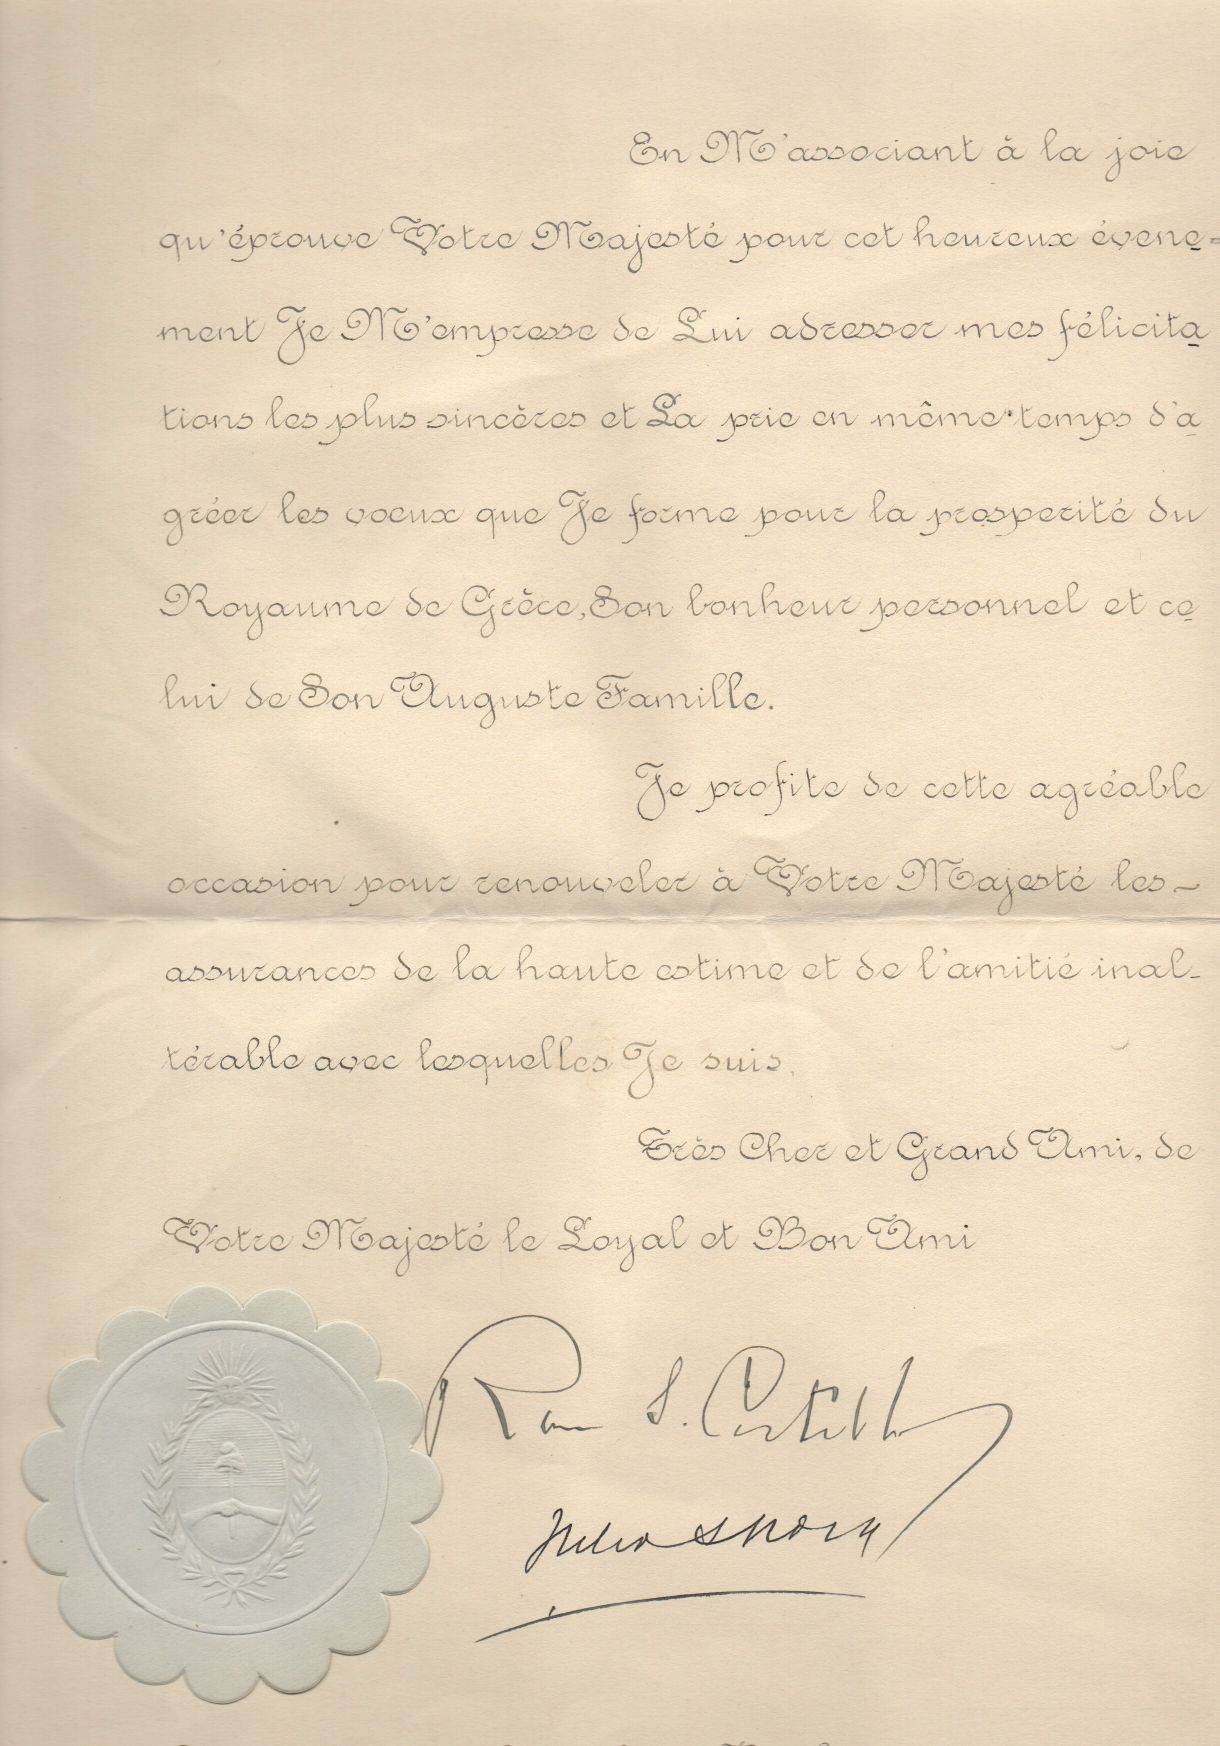 En M'associant à la joie
qu'éprouve Votre Majesté pour cet heureux évene=
ment Je M'empresse de Lui adresser mes félicita
tions les plus sincères et La prie en même temps d'a
gréer les voeux que Je forme pour la prosperité du
Royaume de Grèce, Son bonheur personnel et ce
lui de Son Auguste Famille.
Je profite de cette agréable
occasion pour renouveler à Votre Majesté les
assurances de la haute estime et de l'amitié inal-
térable avec lesquelles Je suis.
Très Cher et Grand Ami, de
Votre Majesté le Loyal et Bon Ami